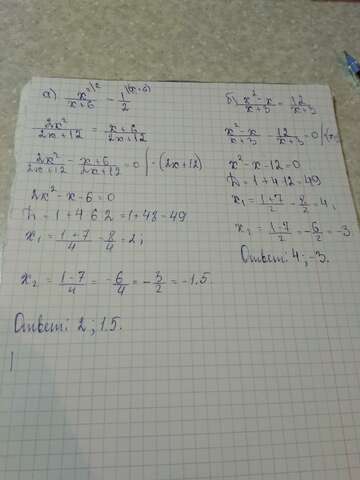 а) x²/(x+6) = 1/2
2x²/(2x+12) = (x+6)/(2x+12)
2x²/(2x+12) - (x+6)/(2x+12) = 0 | · (2x+12)
2x² - x - 6 = 0
D = 1 + 4·6·2 = 1 + 48 = 49
x₁ = (1+7)/4 = 8/4 = 2;
x₂ = (1-7)/4 = -6/4 = -3/2 = -1.5.
Ответ: 2 ; 1.5.
б) (x²-x)/(x+3) = 12/(x+3)
(x²-x)/(x+3) - 12/(x+3) = 0
x² - x - 12 = 0
D = 1 + 4·12 = 49
x₁ = (1+7)/2 = 8/2 = 4;
x₂ = (1-7)/2 = -6/2 = -3
Ответ: 4 ; -3.